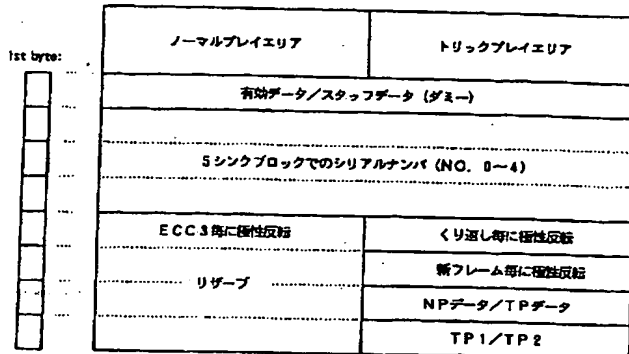 ノーマルプレイエリア
トリックプレイエリア
1st byte:
有効データ/スタッフデータ (ダミー)
5シンクブロックでのシリアルナンバ (NO. 0〜4)
ECC3毎に極性反転
くり返し毎に極性反転
新フレーム毎に極性反転
リザーブ
NPデータ/TPデータ
TP1/TP2